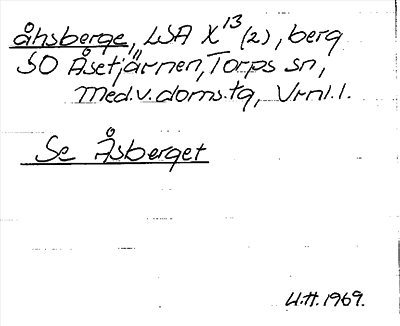 åhsberge,, LSA X¹³ (2), berg
SO Åsetjärnen, Torps sn,
Med.v.doms.tg, Vrnl.l.
Se Åsberget
U.H. 1969.